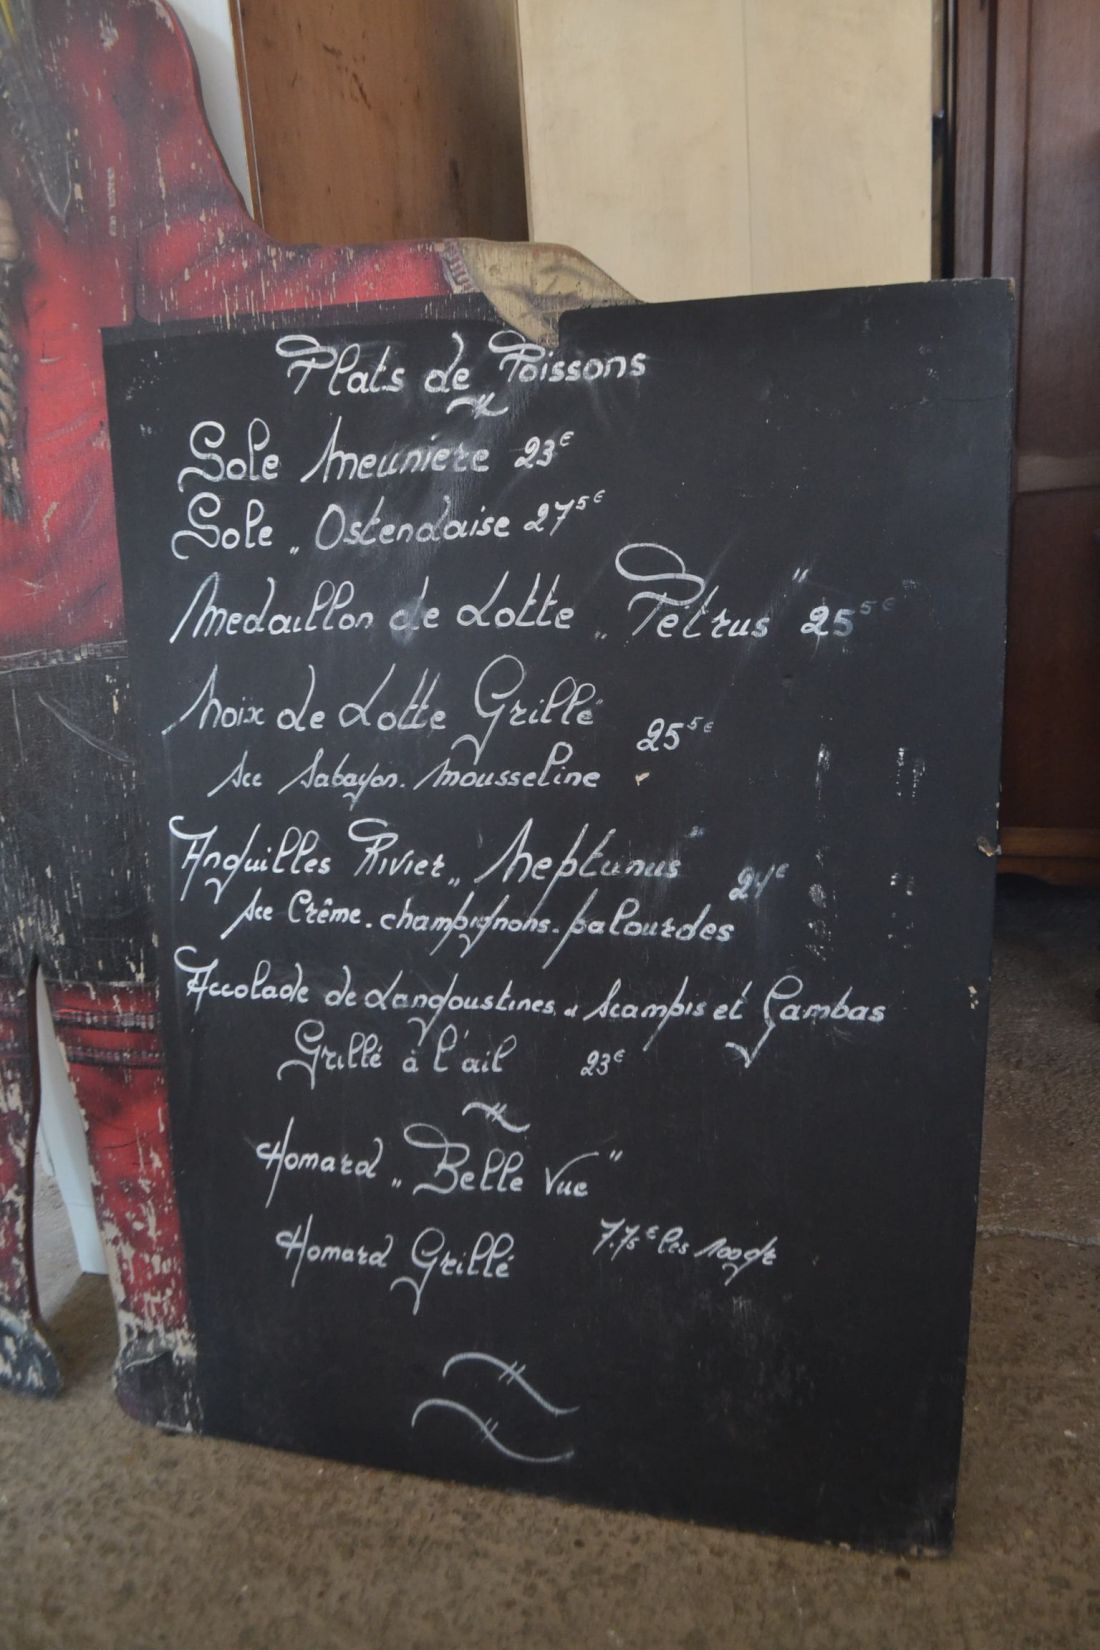 Plats de Poissons
Sole Meunière 23€
Sole „Ostendaise 27⁵€
Medaillon de Lotte „Petrus" 25⁵€
Noix de Lotte Grillé 25⁵€
Sce Sabayon. mousseline
Anguilles Rivier „Neptunus"
Sce Crême. champignons. palourdes
Accolade de Langoustines, Scampis et Gambas
Grillé à l'ail 23€
Homard „Belle Vue"
Homard Grillé 7.75€ les 100gr